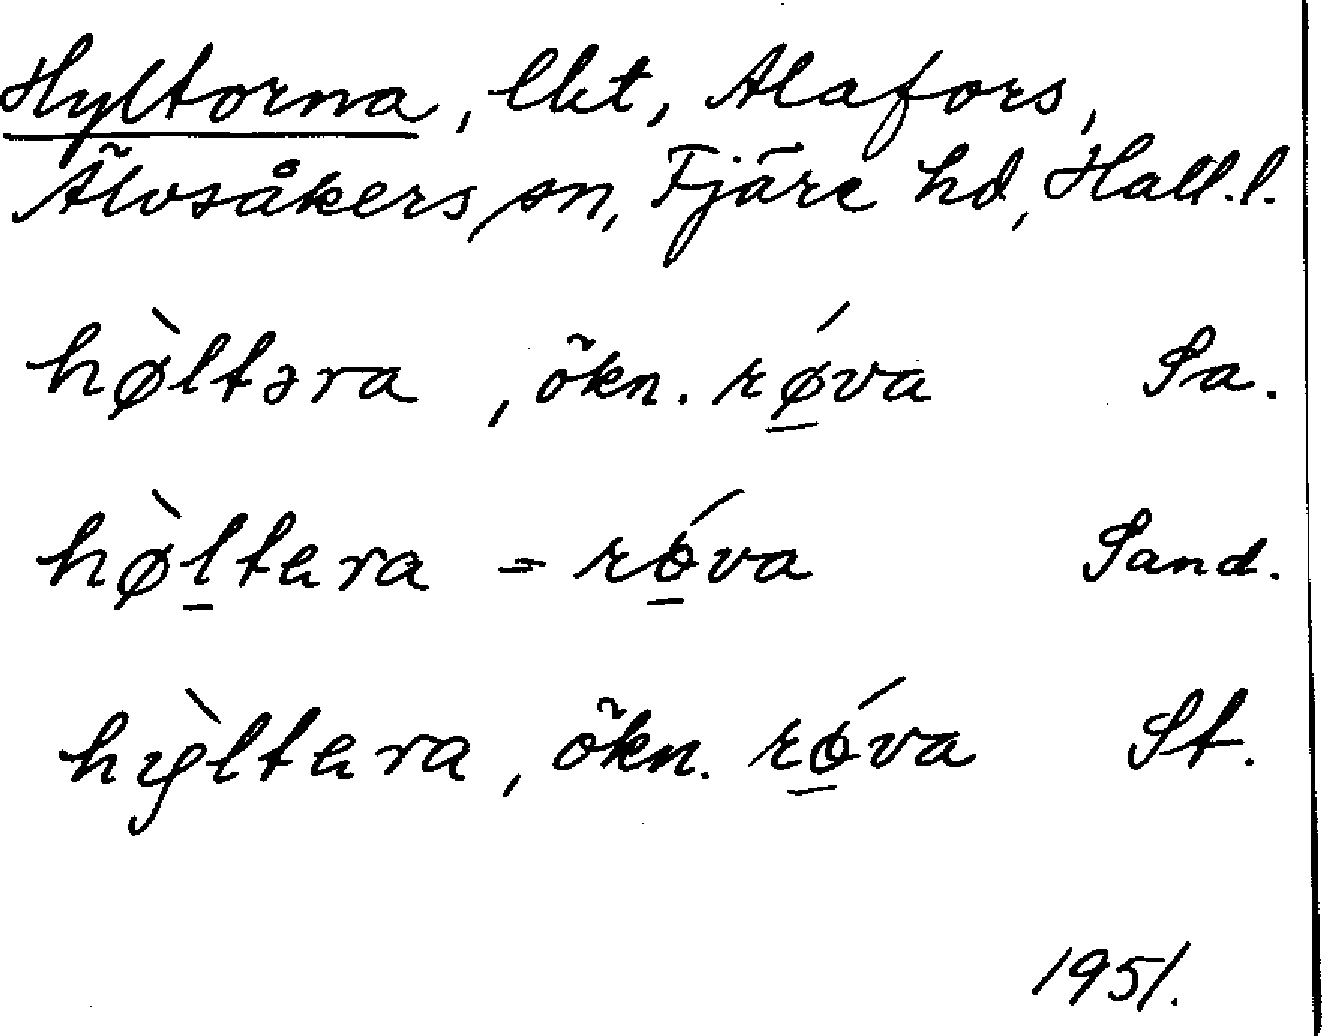 Hyltorna, lht, Alafors,
Älvsåkers sn, Fjäre hd, Hall. l.
hø̀ltəra, ökn. rǿva Sa.
hø̀ltara = róva Sand.
hỳltara, ökn. róva St.
1951.